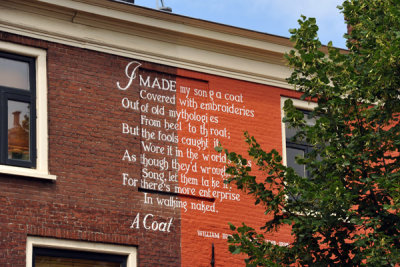 I MADE my song a coat
Covered with embroideries
Out of old mythologies
From heel to throat;
But the fools caught it,
Wore it in the world's
As though they'd wrought
Song, let them take it,
For there's more enterprise
In walking naked.
A Coat
WILLIAM